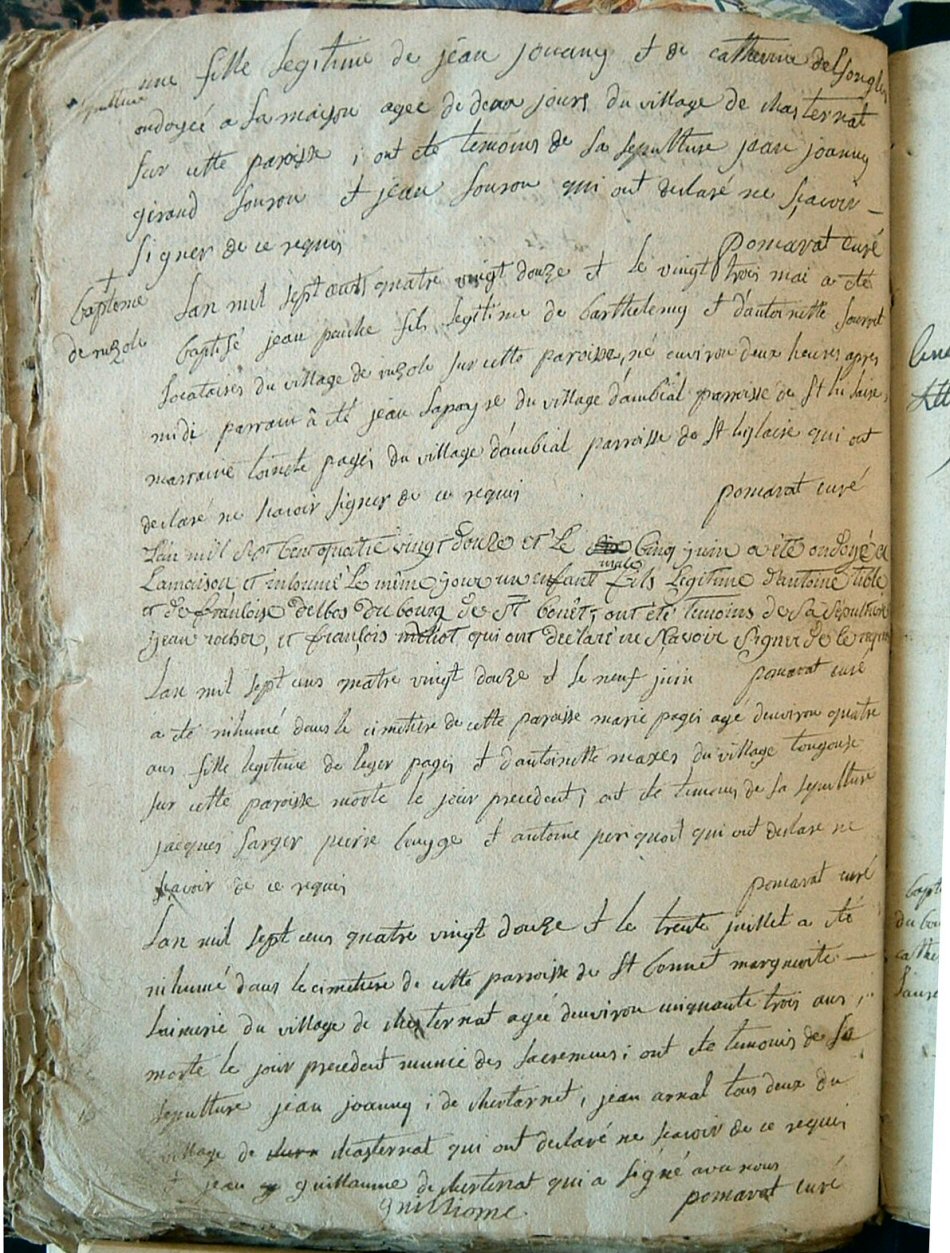 une fille legitime de jean joanny et de catherine delsongles
sepulture
ondoyée a la maison agee de deux jours du village de chasternat
sur cette paroisse ; ont ete temoins de sa sepulture jean joanny
girand souron et jean souron qui ont declaré ne scavoir _
signer de ce requis
pomarat curé
bapteme
de ruzole
Lan mil sept cents quatre vingt douze et le vingt trois mai a été
baptisé jean fils legitime de barthelemy et d'antoinette
locataires du village de ruzole sur cette paroisse, né environ deux heures apres
midi parrain â eté jean lapayse du village dambial parroisse de St hilaire,
marraine toinete pages du village d'ambial parroisse de St hylaire qui ont
declaré ne scavoir signer de ce requis
pomarat curé
Lan mil sept cent quatre vingt douze et le cinq juin a été ondoyé a
Lamaison et inhumé Le même jour un enfant male fils Legitime d'antoine
et de francoise delbos du bourg de St bonêt ; ont été temoins de sa sépulture
jean rocher, et françois qui ont declaré ne scavoir signer de ce requis
pomarat curé
Lan mil sept cens quatre vingt douze et le neuf juin
a été inhumé dans le cimetiere de cette paroisse marie pages agé denviron quatre
ans fille legitime de leger pages et d'antoinette mazes du village tougouse
sur cette paroisse morte le jour precedent ; ont ete temoins de sa sepulture
jacques sarger pierre bouyge et antoine qui ont declare ne
scavoir de ce requis
pomarat curé
Lan mil sept cens quatre vingt douze et le trente juillet a été
inhumé dans le cimetiere de cette parroisse de St bonnet marguerite —
du village de chesternat agée denviron cinquante trois ans,
morte le jour precedent munie des sacremens ; ont ete temoins de sa
sepulture jean joanny ; de chestarnet, jean arnal tous deux du
village de chasternat qui ont declaré ne scavoir de ce requis
et jean guillaume de chesternat qui a signé avec nous
guilhome
pomarat curé